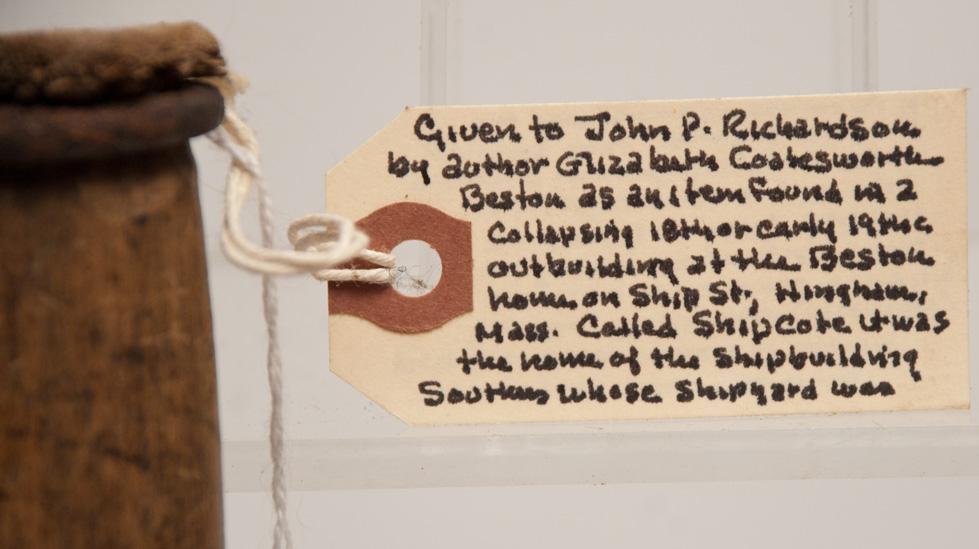 Given to John P. Richardson
by author Elizabeth Coatesworth
Beston as an item found in a
Collapsing 18th or early 19th c
outbuilding at the Beston
home on Ship St., Hingham,
Mass. Called Ship Cote it was
the home of the Shipbuilding
Souther whose Shipyard was